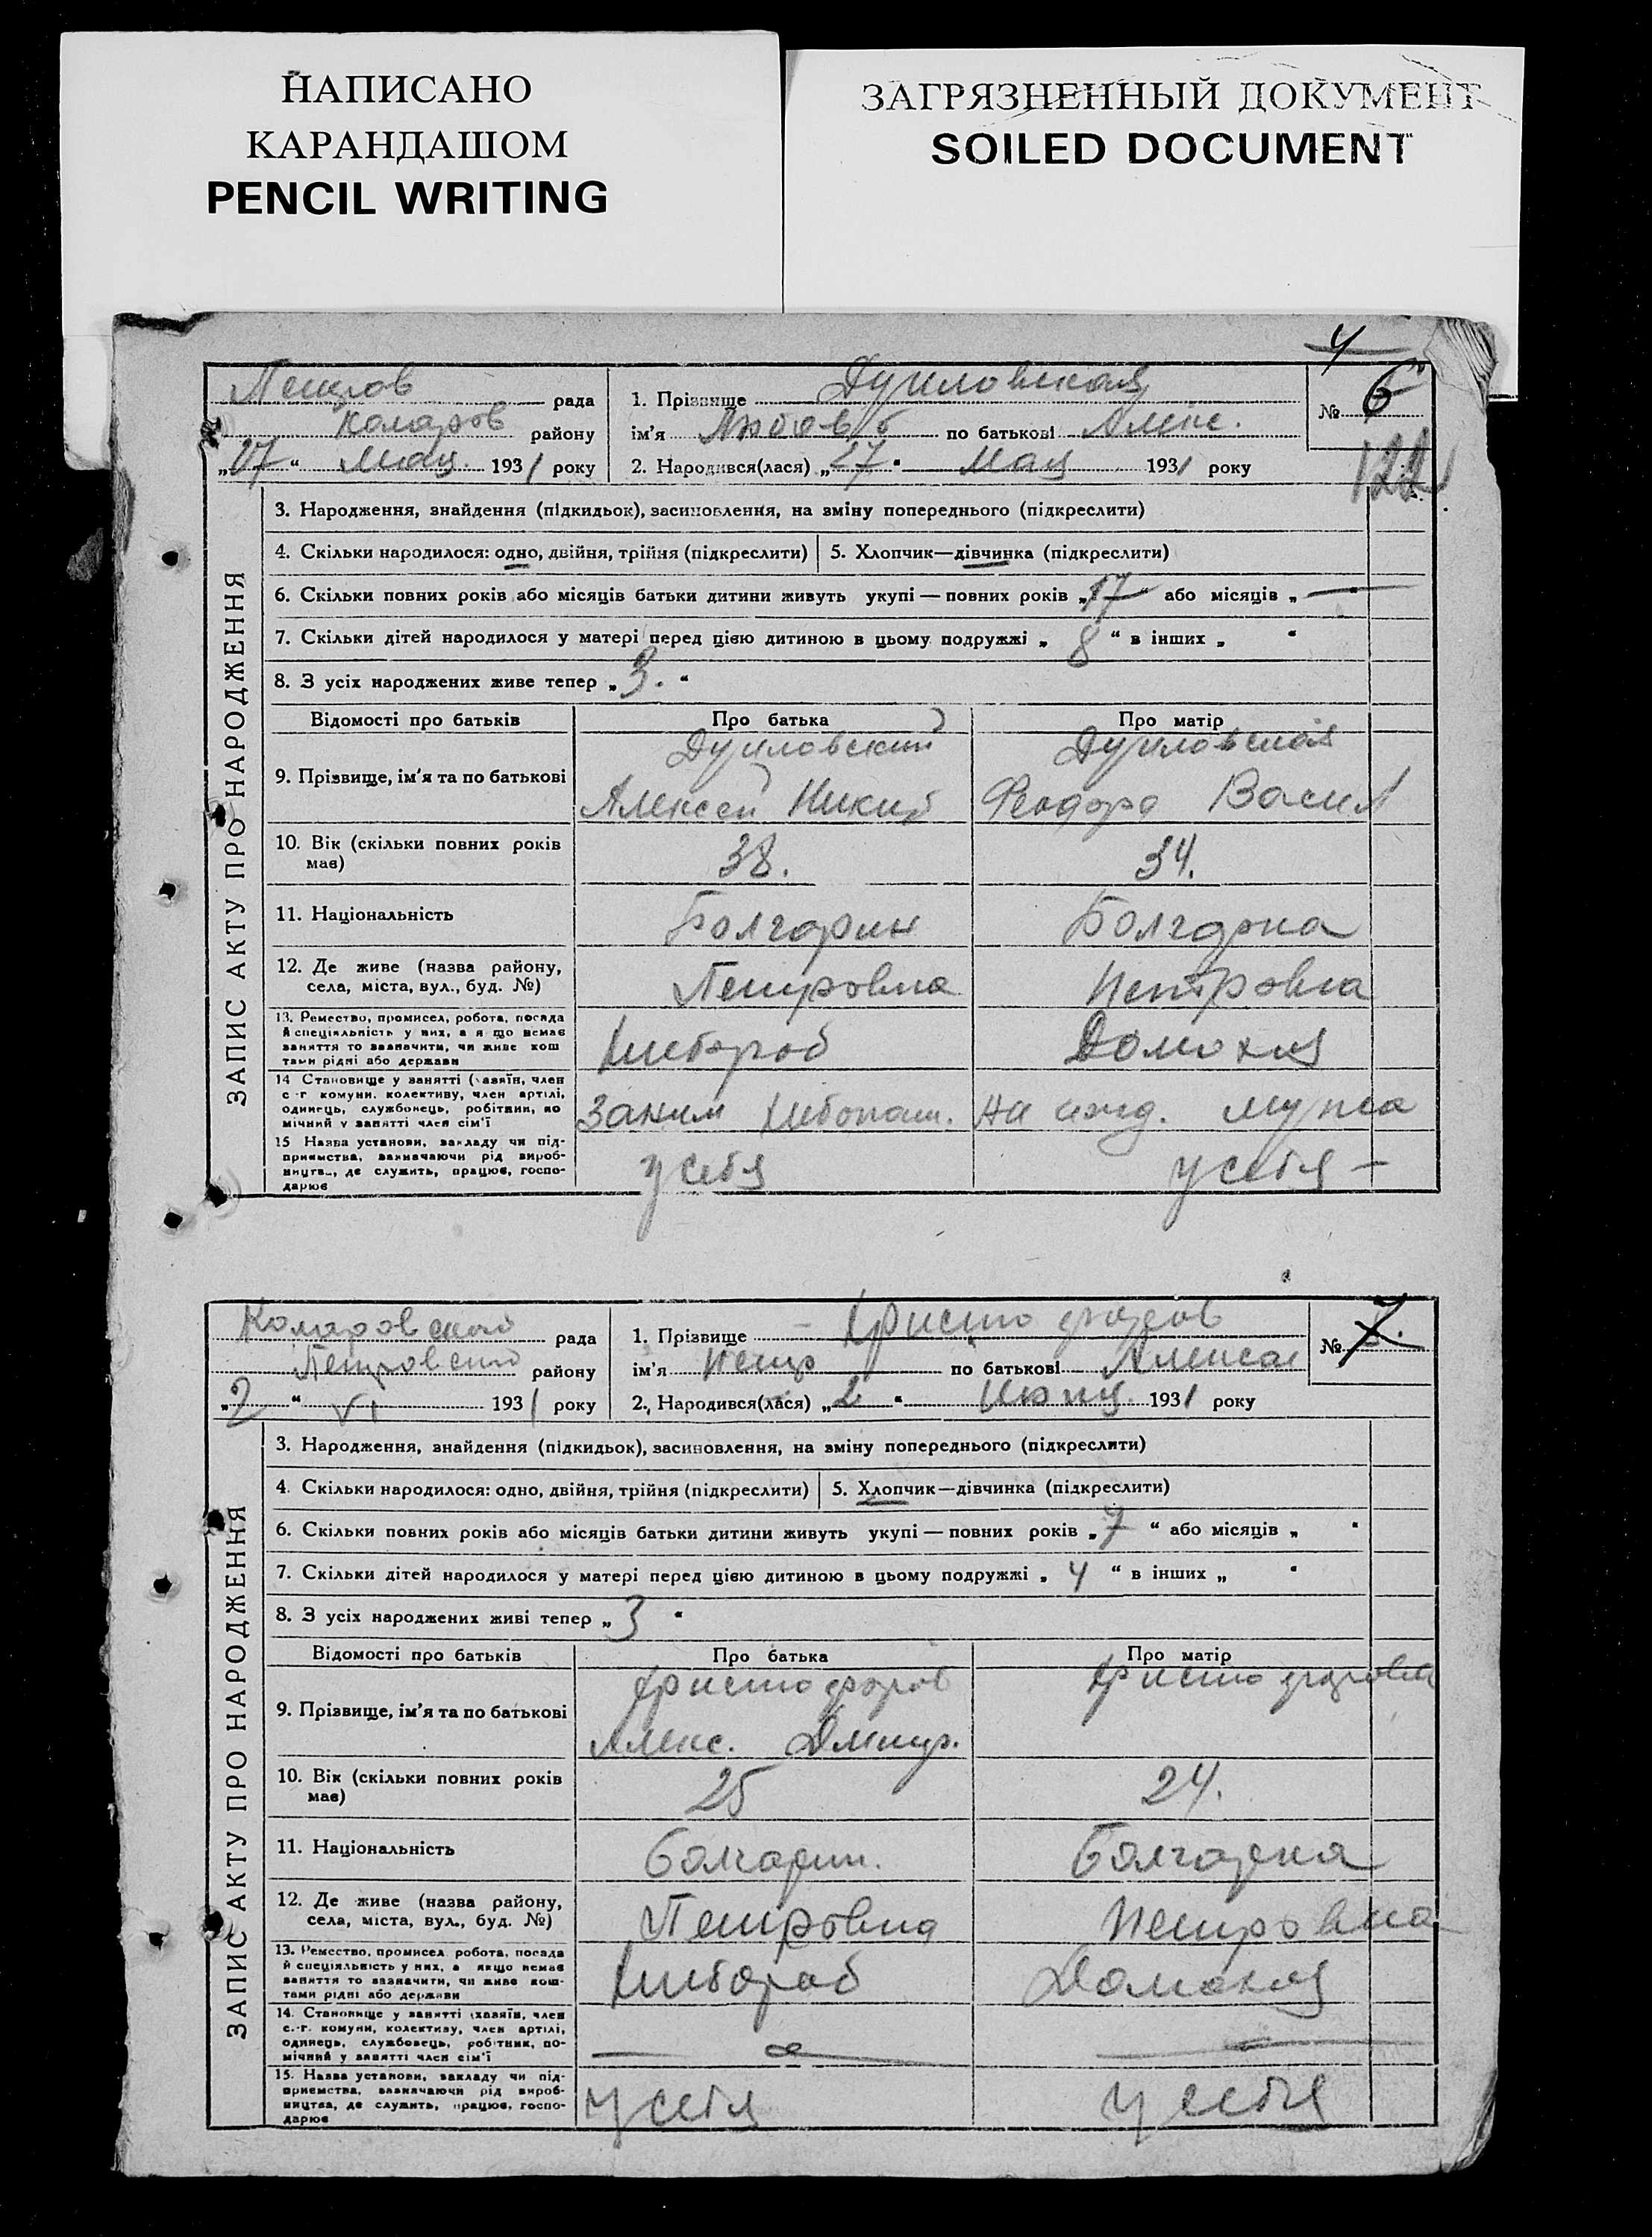 НАПИСАНО
КАРАНДАШОМ
PENCIL WRITING
ЗАГРЯЗНЕННЫЙ ДОКУМЕНТ
SOILED DOCUMENT
4
Петров рада
Коларов району
„27“ Мая 1931 року
1. Прізвище
ім'я Любовь по батькові Алекс.
2. Народився(лася) „27“ Мая 1931 року
№ 6
122
ЗАПИС АКТУ ПРО НАРОДЖЕННЯ
3. Народження, знайдення (підкидьок), засиновлення, на зміну попереднього (підкреслити)
4. Скільки народилося: одно, двійня, трійня (підкреслити) 5. Хлопчик—дівчинка (підкреслити)
6. Скільки повних років або місяців батьки дитини живуть укупі — повних років „17“ або місяців „—“
7. Скільки дітей народилося у матері перед цією дитиною в цьому подружжі „8“ в інших „ “
8. З усіх народжених живе тепер „3.“
Відомості про батьків Про батька Про матір
9. Прізвище, ім'я та по батькові
Алексей Никит Феодора Васил
10. Вік (скільки повних років має) 38. 34.
11. Національність Болгарин Болгарка
12. Де живе (назва району, села, міста, вул., буд. №) Петровка Петровка
13. Ремество, промисел, робота, посада й спеціяльність у них, а я що немає заняття то зазначити, чи живе кош тами рідні або держави Хлебороб Домохоз
14 Становище у занятті (хазяїн, член с-г комуни. колективу, член артілі, одинець, службовець, робітник, по мічний у занятті член сім'ї Заним хлебопаш. На ижд. мужа
15 Назва установи, закладу чи підприємства, зазначаючи рід виробництва, де служить, працює, господарює у себя у себя —
Коларовской рада
Петровский району
„2“ VI 1931 року
1. Прізвище Христофоров
ім'я Петр по батькові Алексе
2. Народився(лася) „2“ Июня 1931 року
№ 7.
ЗАПИС АКТУ ПРО НАРОДЖЕННЯ
3. Народження, знайдення (підкидьок), засиновлення, на зміну попереднього (підкреслити)
4. Скільки народилося: одно, двійня, трійня (підкреслити) 5. Хлопчик—дівчинка (підкреслити)
6. Скільки повних років або місяців батьки дитини живуть укупі — повних років „7“ або місяців „ “
7. Скільки дітей народилося у матері перед цією дитиною в цьому подружжі „4“ в інших „ “
8. З усіх народжених живі тепер „3“
Відомості про батьків Про батька Про матір
9. Прізвище, ім'я та по батькові Христофоров Христофорова
Алекс. Дмитр.
10. Вік (скільки повних років має) 25 24.
11. Національність Болгарин. Болгарка
12. Де живе (назва району, села, міста, вул., буд. №) Петровка Петровка
13. Ремество, промисел робота, посада й спеціяльність у них, а якщо немає заняття то зазначити, чи живе коштами рідні або держави Хлебороб Домохоз
14. Становище у занятті (хазяїн, член с.-г. комуни, колективу, член артілі, одинець, службовець, робітник, помічний у занятті член сім'ї — —
15. Назва установи, закладу чи підприємства, зазначаючи рід виробництва, де служить, працює, господарює у себя у себя